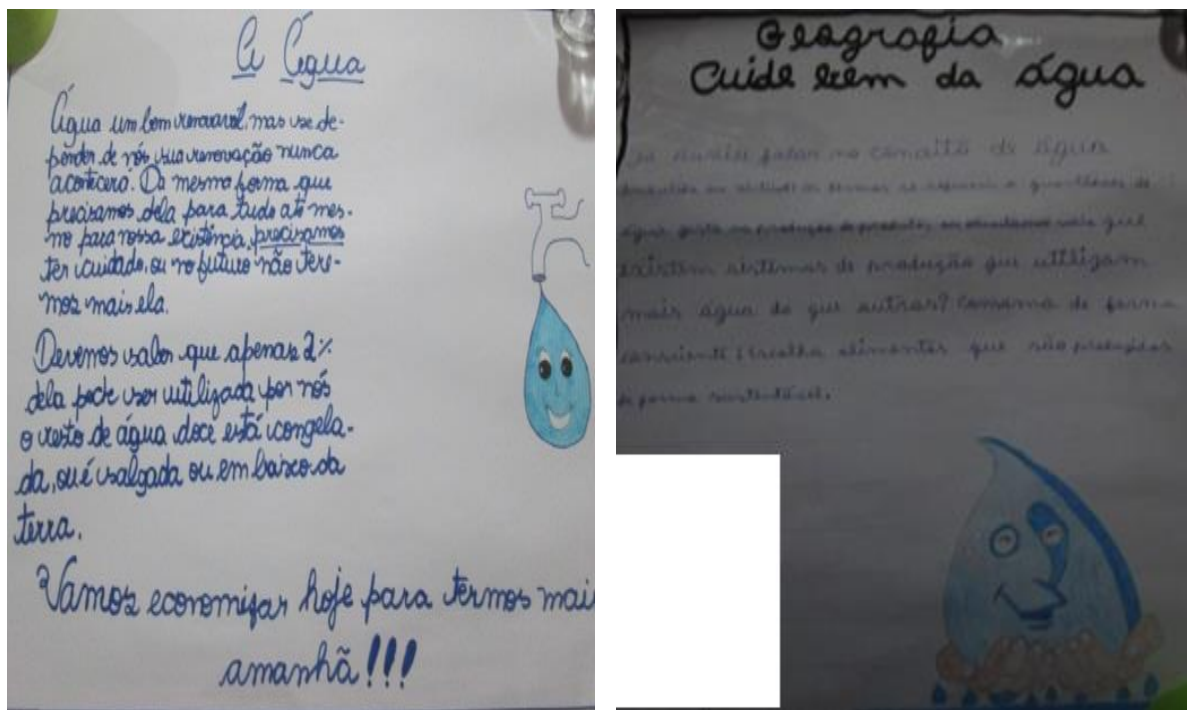 A Água
Água um bem renovável, mas se de-
pender de nós sua renovação nunca
acontecerá. Da mesma forma que
precisamos dela para tudo até mes-
mo para nossa existência, precisamos
ter cuidado, ou no futuro não tere-
mos mais ela.
Devemos saber que apenas 2%
dela pode ser utilizada por nós
o resto de água doce está congela-
da, ou é salgada ou em baixo da
terra.
Vamos economizar hoje para termos mais
amanhã!!!
Geografia
Cuide bem da água
Já ouviu falar no conceito de água
água gasta na produção de produto, ou
existem sistemas de produção que utilizam
mais água do que outras? Consuma de forma
consciente escolha alimentos que são produzidos
de forma sustentável.